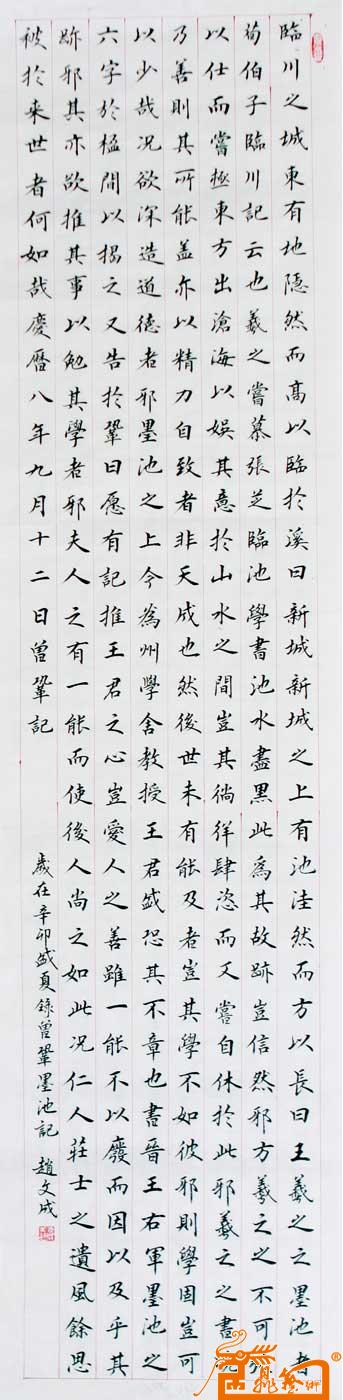 臨川之城東有地隱然而高以臨於溪曰新城新城之上有池洼然而方以長曰王羲之之墨池者
荀伯子臨川記云也羲之嘗慕張芝臨池學書池水盡黑此為其故跡豈信然邪方羲之之不可強
以仕而嘗極東方出滄海以娛其意於山水之間豈其徜徉肆恣而又嘗自休於此邪羲之之書晚
乃善則其所能蓋亦以精力自致者非天成也然後世未有能及者豈其學不如彼邪則學固豈可
以少哉況欲深造道德者邪墨池之上今為州學舍教授王君盛恐其不章也書晉王右軍墨池之
六字於楹間以揭之又告於鞏曰愿有記推王君之心豈愛人之善雖一能不以廢而因以及乎其
跡邪其亦欲推其事以勉其學者邪夫人之有一能而使後人尚之如此況仁人莊士之遺風餘思
被於來世者何如哉慶曆八年九月十二日曾鞏記
歲在辛卯盛夏錄曾鞏墨池記 趙文成